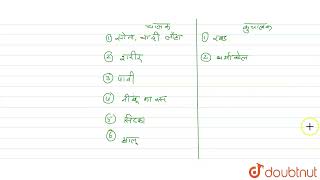 चालक कुचालक
① सोना, चांदी, लोहा ① रबड़
② शरीर ② थर्माकोल
③ पानी
④ नींबू का रस
⑤ सिरका
⑥ आलू
doubtnut